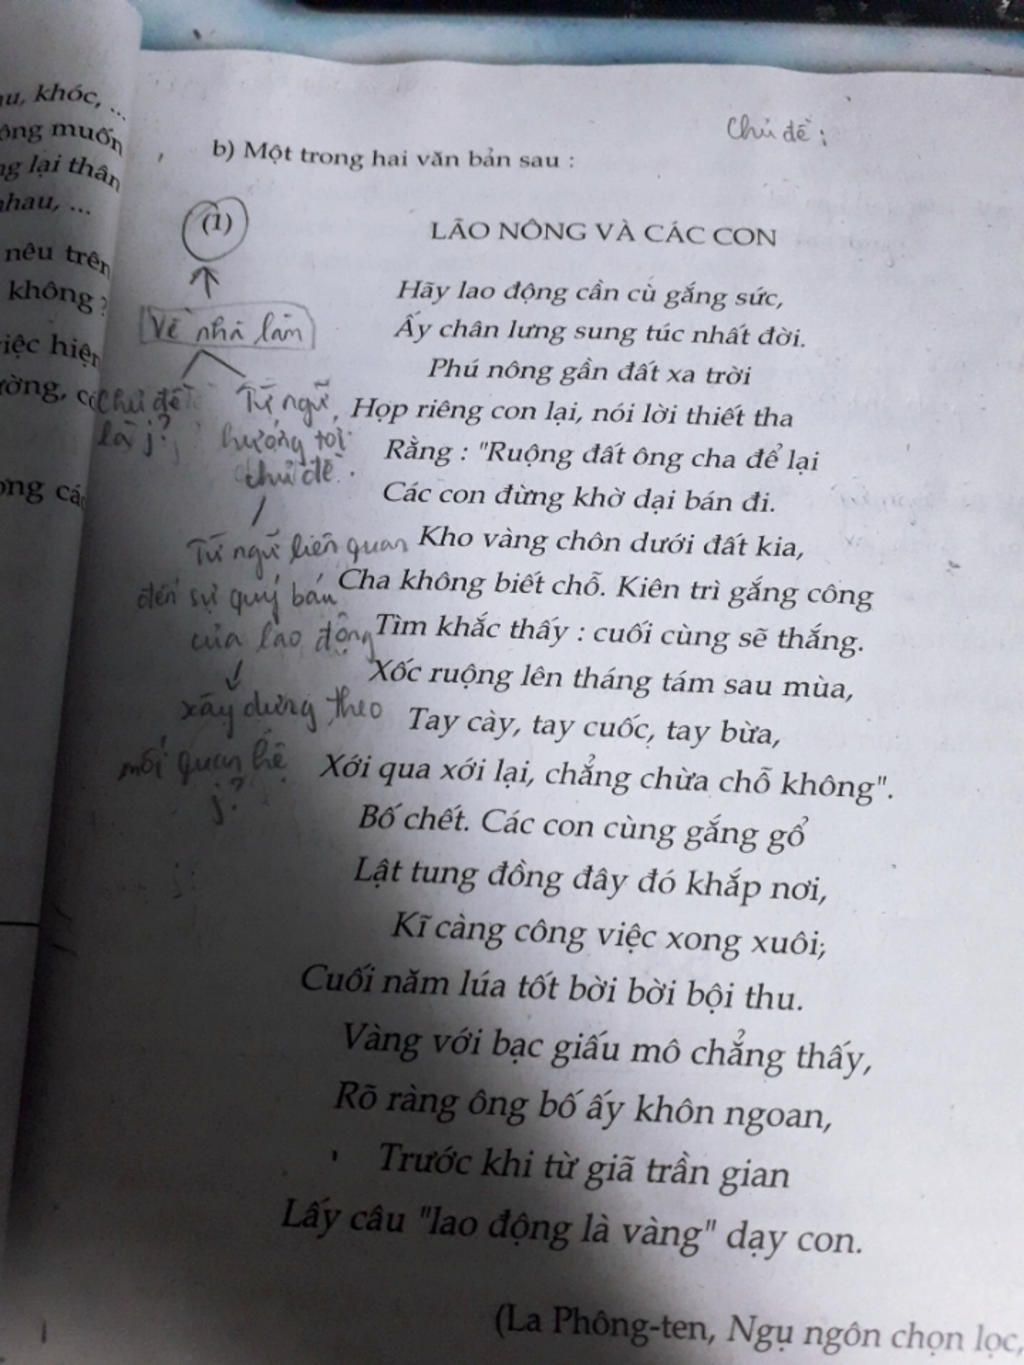 khóc, ...
muốn
lại thân
nhau, ...
nêu trên
không ?
hiện
Chủ đề :
b) Một trong hai văn bản sau :
(1)
LÃO NÔNG VÀ CÁC CON
Về nhà làm
Chủ đề
là j?
Từ ngữ
hướng tới
chủ đề.
Từ ngữ liên quan
đến sự quý báu
của lao động
xây dựng theo
mối quan hệ
j?
Hãy lao động cần cù gắng sức,
Ấy chân lưng sung túc nhất đời.
Phú nông gần đất xa trời
Họp riêng con lại, nói lời thiết tha
Rằng : "Ruộng đất ông cha để lại
Các con đừng khờ dại bán đi.
Kho vàng chôn dưới đất kia,
Cha không biết chỗ. Kiên trì gắng công
Tìm khắc thấy : cuối cùng sẽ thắng.
Xốc ruộng lên tháng tám sau mùa,
Tay cày, tay cuốc, tay bừa,
Xới qua xới lại, chẳng chừa chỗ không".
Bố chết. Các con cùng gắng gổ
Lật tung đồng đây đó khắp nơi,
Kĩ càng công việc xong xuôi;
Cuối năm lúa tốt bời bời bội thu.
Vàng với bạc giấu mô chẳng thấy,
Rõ ràng ông bố ấy khôn ngoan,
Trước khi từ giã trần gian
Lấy câu "lao động là vàng" dạy con.
(La Phông-ten, Ngụ ngôn chọn lọc,